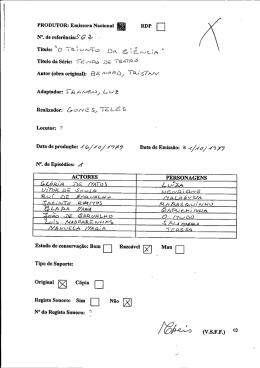 PRODUTOR: Emissora Nacional RDP
Nº. de referência: 562
Título: "O TRIUNFO DA CIÊNCIA"
Título da Série: TEMPO DE TEATRO
Autor (obra original): BERNARD, TRISTAN
Adaptador: FRANCO, LUZ
Realizador: GOMES, TELES
Locutor: ?
Data de produção: 16/10/1979 Data de Emissão: 31/10/1979
Nº. de Episódios: 1
ACTORES PERSONAGENS
GLÓRIA DE MATOS LUÍSA
VITOR DE SOUSA HENRIQUE
RUI DE CARVALHO MALAQUIA
JACINTO RAMOS
CLARA
JOÃO DE CARVALHO O MUDO
LUÍS MASCARENHAS
MANUELA MARIA TERESA
Estado de conservação: Bom Razoável X Mau
Tipo de Suporte:
Original X Cópia
Registo Sonoro: Sim Não X
Nº do Registo Sonoro: ?
(V.S.F.F.)